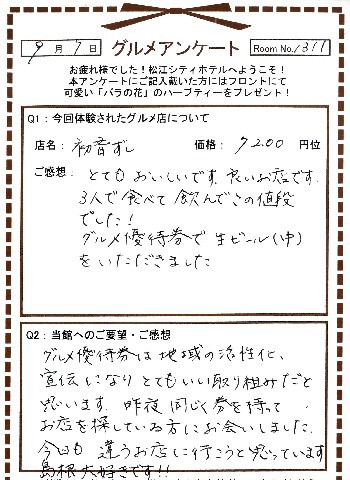 9月7日 グルメアンケート Room No.1311
お疲れ様でした！松江シティホテルへようこそ！
本アンケートにご記入戴いた方にはフロントにて
可愛い「バラの花」のハーブティーをプレゼント！
Q1：今回体験されたグルメ店について
店名： 初音ずし 価格： 7200 円位
ご感想： とてもおいしいです。良いお店です。
3人で食べて飲んでこの値段
でした！
グルメ優待券で生ビール(中)
をいただきました
Q2：当館へのご要望・ご感想
グルメ優待券は地域の活性化、
宣伝になりとてもいい取り組みだと
思います。昨夜同じく券を持って
お店を探している方にお会いしました。
今日も違うお店に行こうと思っています
島根大好きです!!